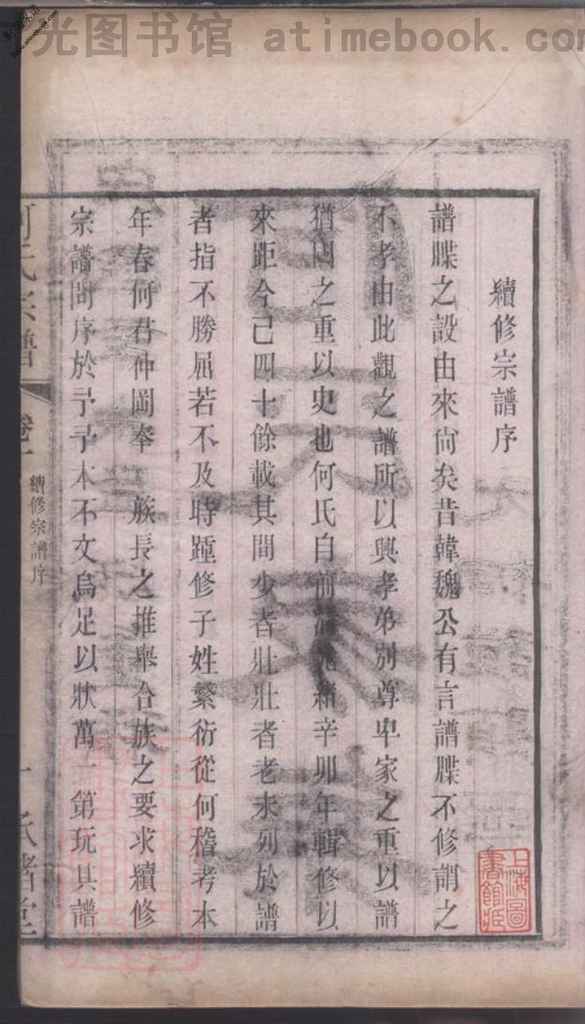 时光图书馆 atimebook.com
續修宗譜序
譜牒之設由來尙矣昔韓魏公有言譜牒不修謂之
不孝由此觀之譜所以興孝弟別尊卑家之重以譜
猶國之重以史也何氏自前清光緒辛卯年輯修以
來距今已四十餘載其間少者壯壯者老未列於譜
者指不勝屈若不及時踵修子姓繁衍從何稽考本
年春何君仲岡奉 族長之推舉合族之要求續修
宗譜問序於予予本不文烏足以狀萬一第玩其譜
何氏宗譜
卷一
續修宗譜序
一
上海圖書館藏